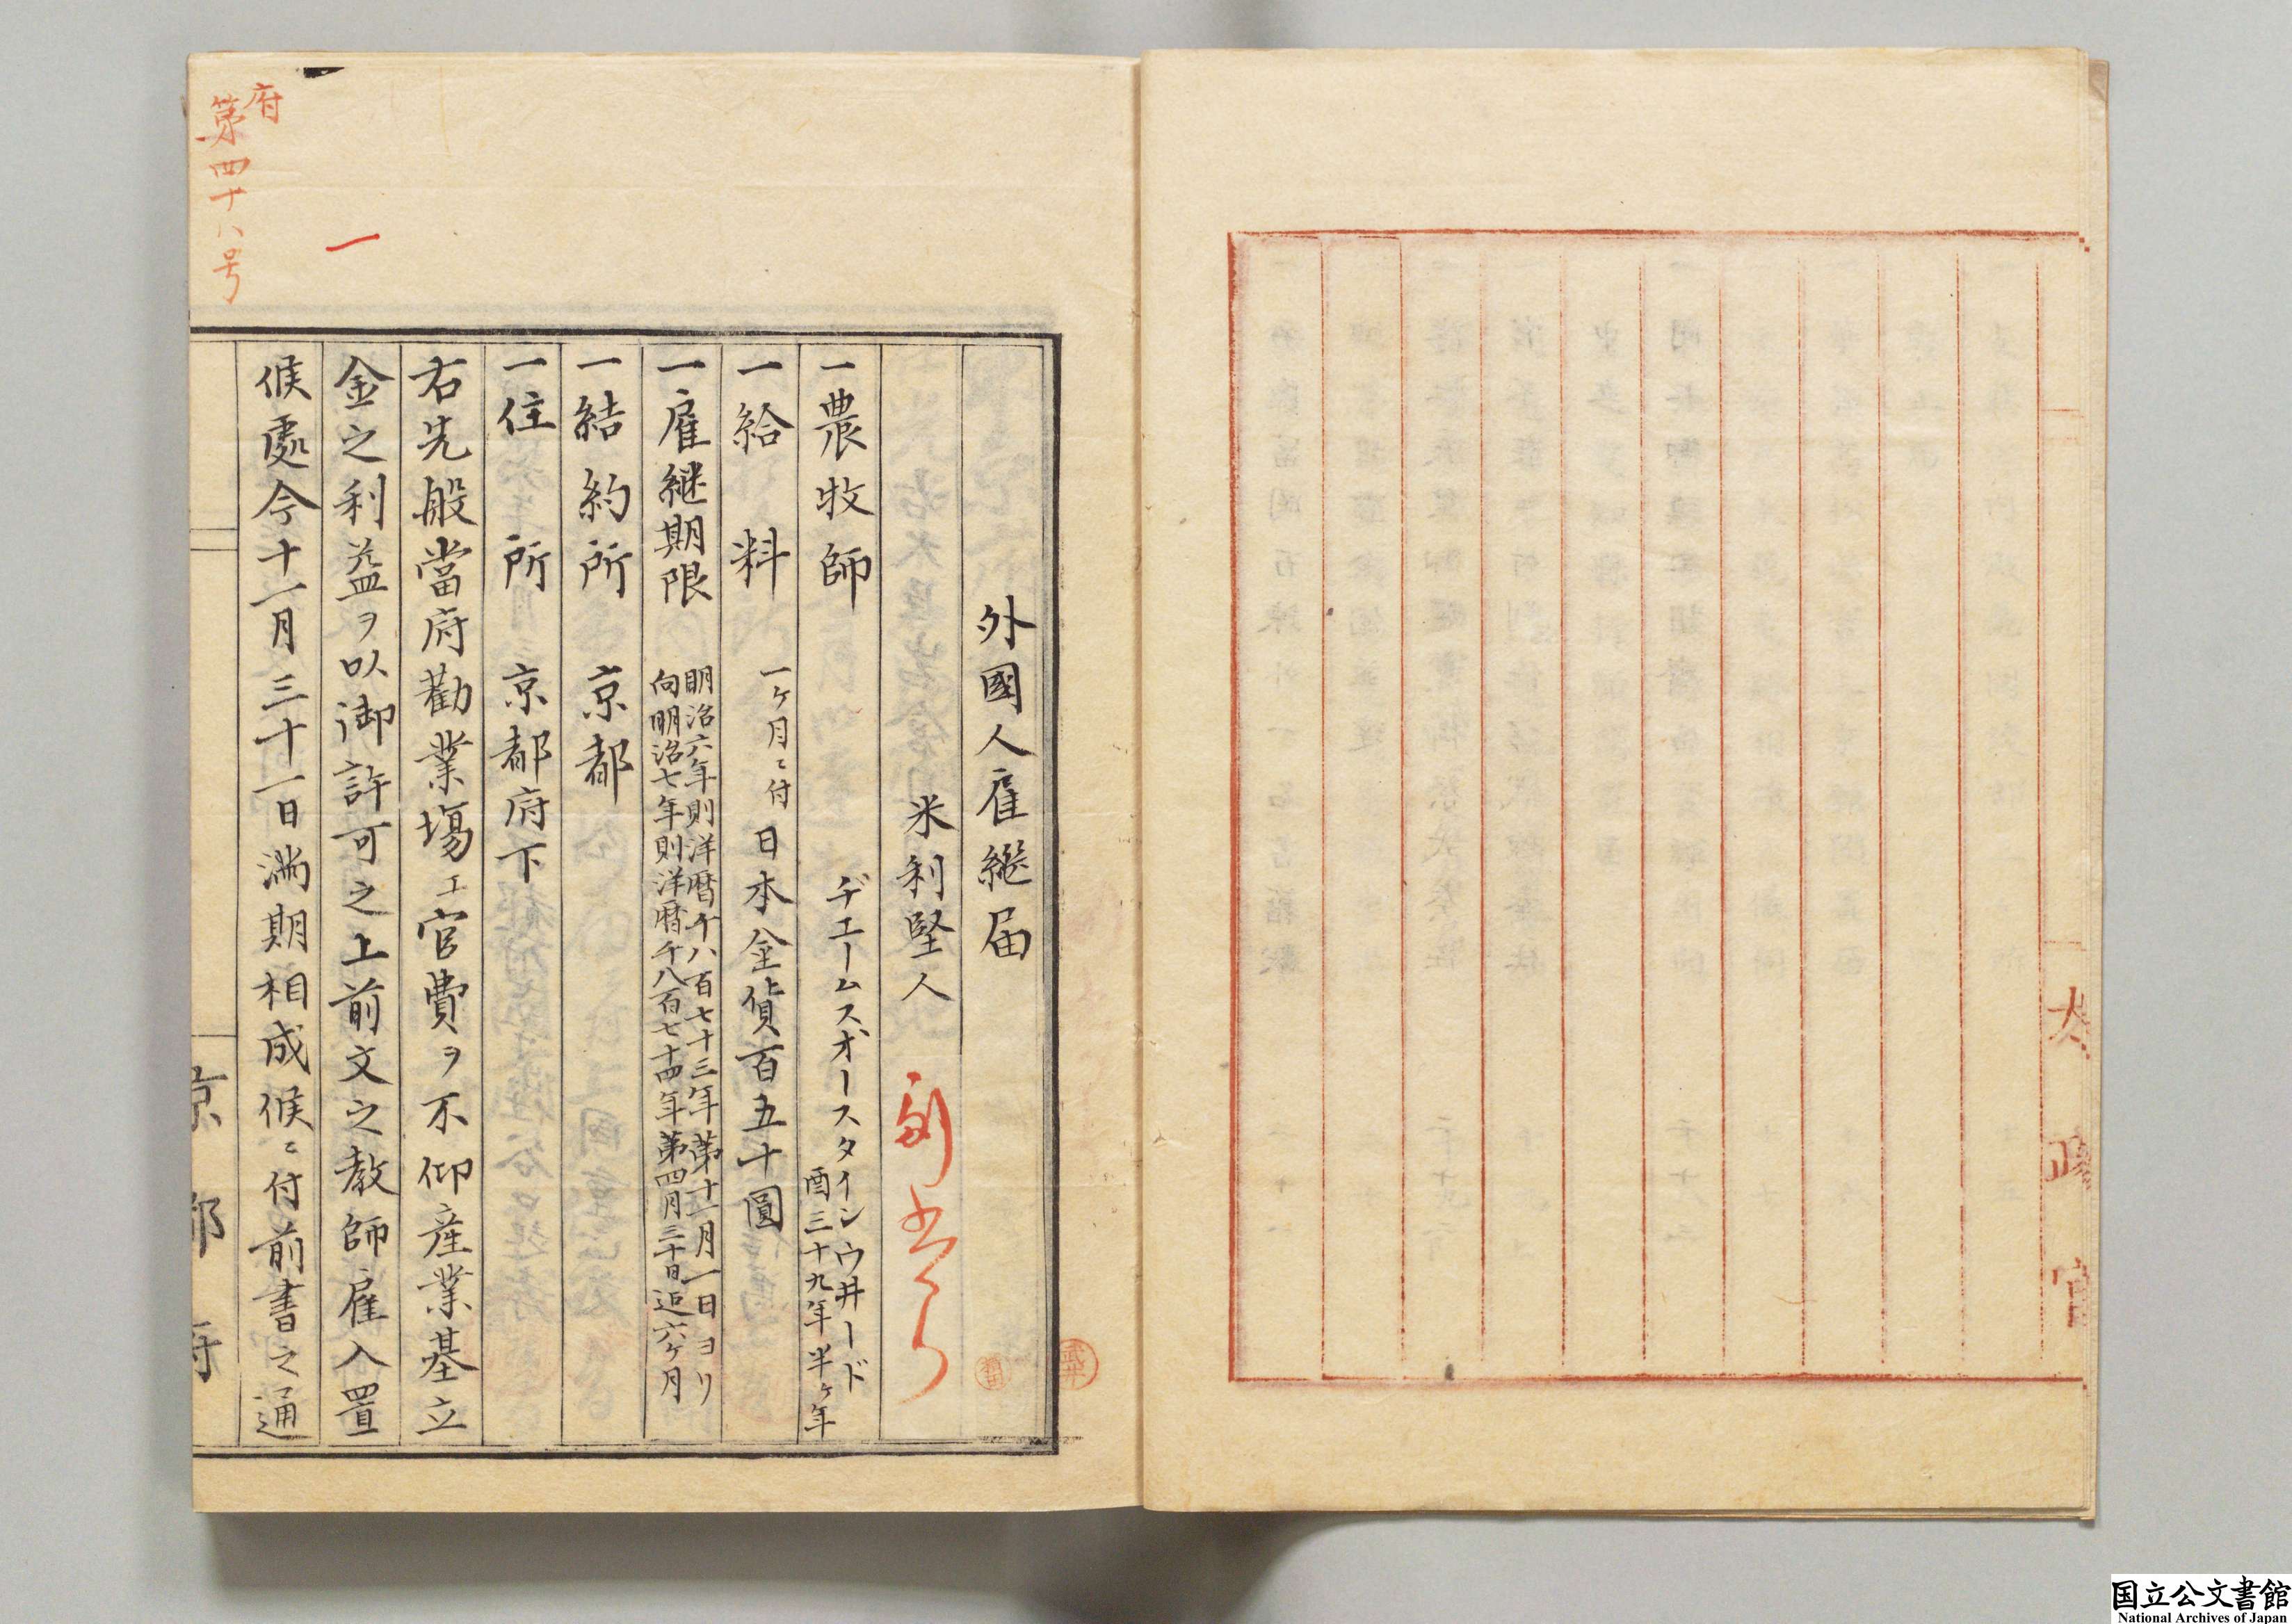 太政官
外國人雇継届
米利堅人
一農牧師
ヂエームスオースタインウ井ード
酉三十九年半ヶ年
一給料 一ヶ月ニ付日本金貨百五十圓
一雇継期限
明治六年則洋暦千八百七十三年第十一月一日ヨリ
向明治七年則洋暦千八百七十四年第四月三十日迄六ヶ月
一結約所 京都
一住所 京都府下
右先般當府勸業場エ官費ヲ不仰産業基立
金之利益ヲ以御許可之上前文之教師雇入置
候處今十一月三十一日満期相成候ニ付前書之通
京都府
府
第四十八号
一
国立公文書館
National Archives of Japan